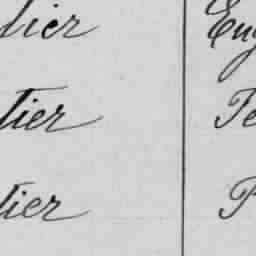 tier Eug
tier Te
tier P